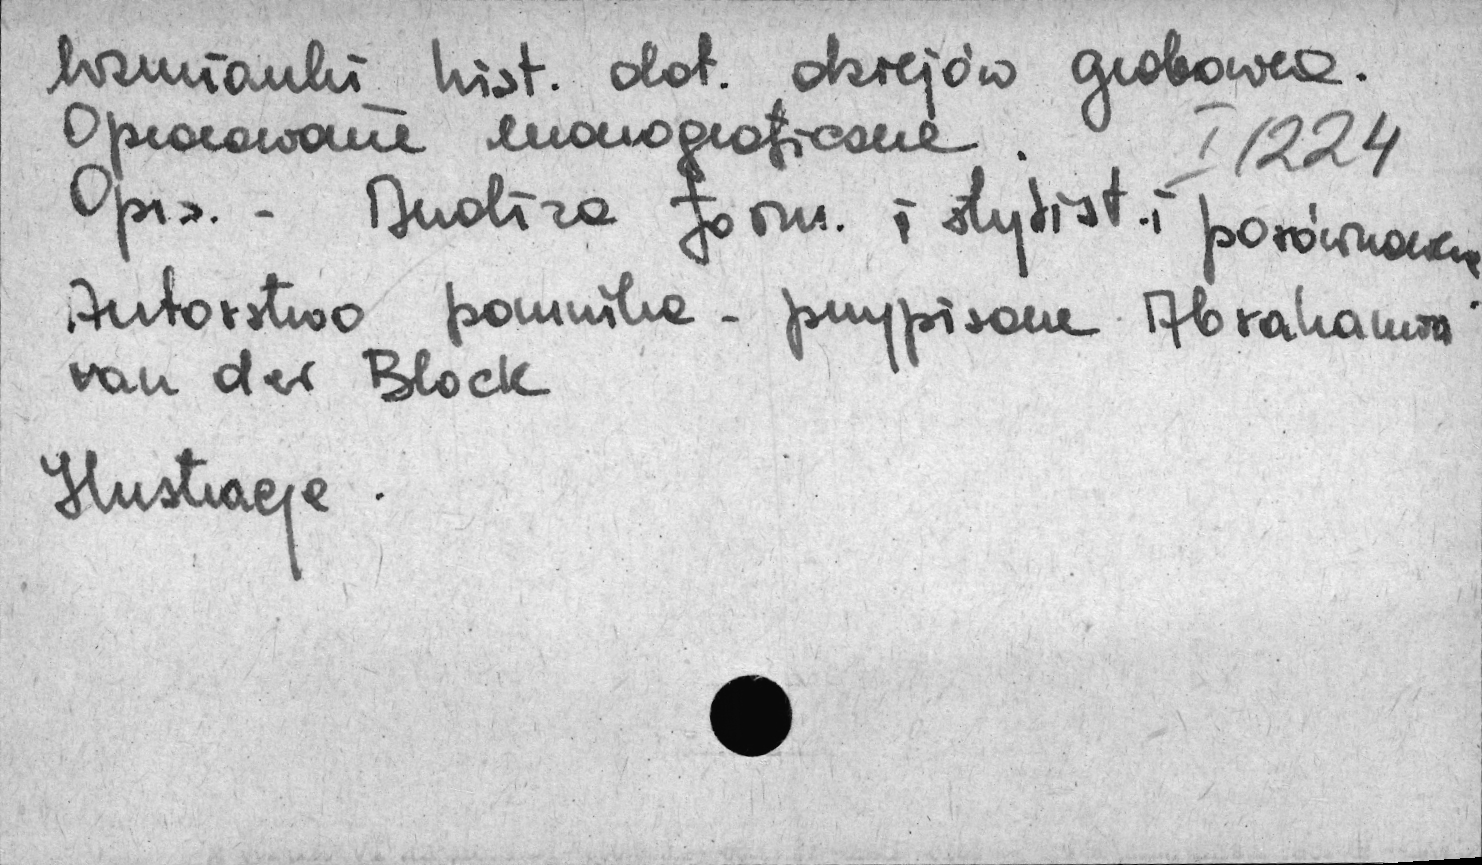 Wzmianki hist. dot. dziejów grobowca.
Opracowanie monograficzne. I 1224
Opis. - Analiza form. i stylist. i porównawcza.
Autorstwo pomnika - przypisane Abrahamowi
van der Block
Ilustracje.